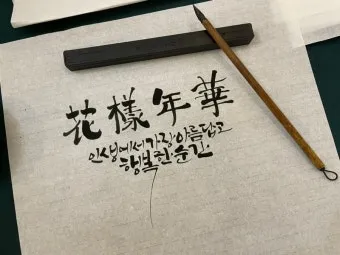 花樣年華
인생에서 가장 아름답고
행복한 순간.